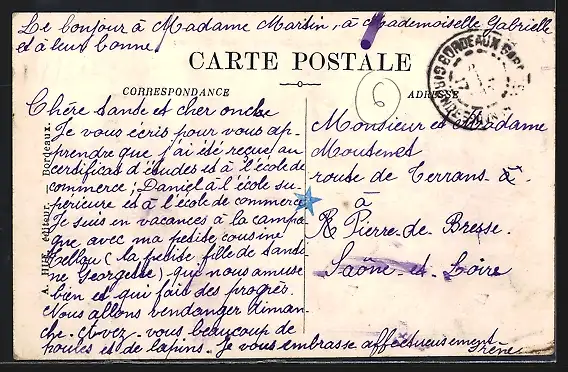 Le bonjour à Madame Martin, à Mademoiselle Gabrielle
et à leur bonne
CARTE POSTALE
CORRESPONDANCE
ADRESSE
6
BORDEAUX
Chère tante et cher oncle
Je vous écris pour vous ap-
prendre que j'ai été reçue au
certificat d'études et à l'école de
commerce; Daniel à l'école su-
périeure et à l'école de commerce
Je suis en vacances à la campa
gne avec ma petite cousine
(la petite fille de tanti-
ne Georgette) qui nous amuse
bien et qui fait des progrès.
Nous allons vendanger diman-
che. Avez-vous beaucoup de
poules et de lapins. Je vous embrasse affectueusement
Irène
Monsieur et Madame
Moutenet
route de Terrans
à
Pierre-de-Bresse
Saône-et-Loire
Bordeaux.